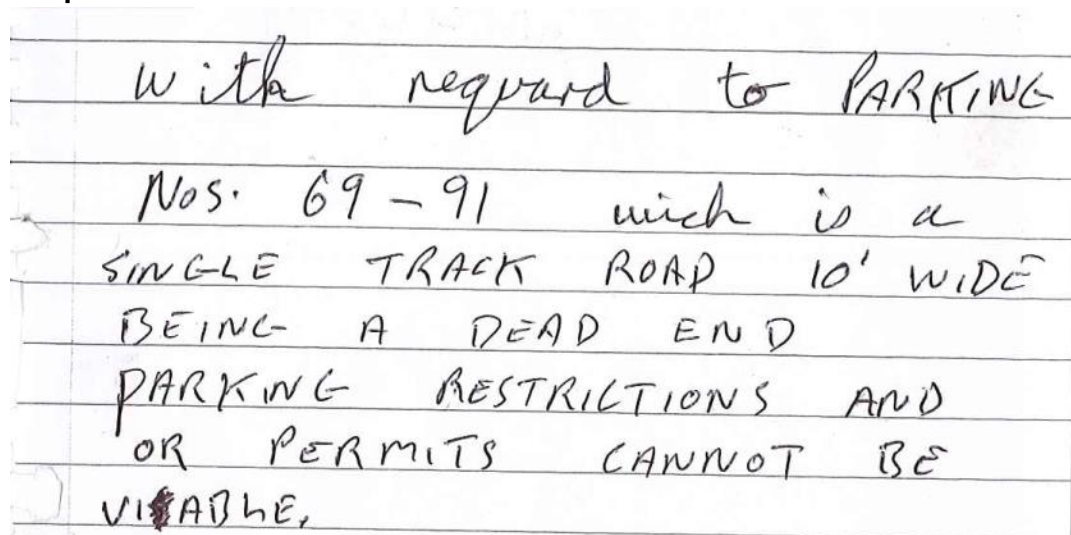 with reguard to PARKING
Nos. 69 - 91 wich is a
SINGLE TRACK ROAD 10' WIDE
BEING A DEAD END
PARKING RESTRICTIONS AND
OR PERMITS CANNOT BE
VIABLE.